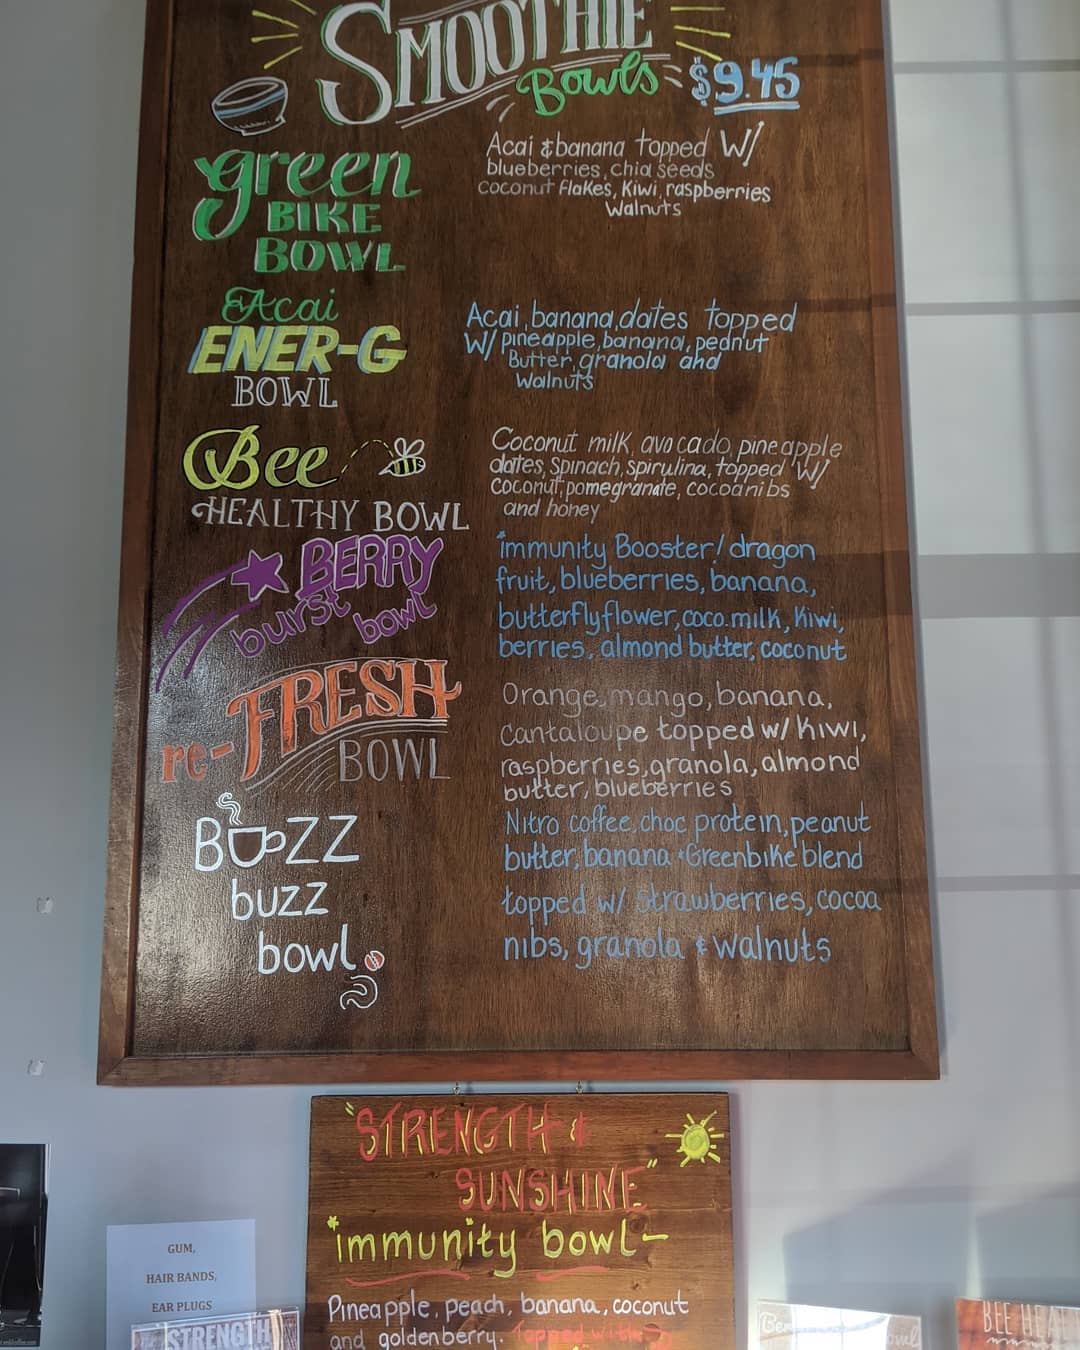 SMOOTHIE
Bowls $9.45
green
BIKE
BOWL
Acai & banana topped W/
blueberries, chia seeds
coconut flakes, Kiwi, raspberries
Walnuts
Acai
ENER-G
BOWL
Acai, banana, dates topped
W/ pineapple, banana, peanut
Butter, granola and
Walnuts
Bee
HEALTHY BOWL
Coconut milk, avocado, pineapple
dates, Spinach, spirulina, topped W/
coconut, pomegranate, cocoa nibs
and honey
BERRY
burst bowl
*immunity Booster! dragon
fruit, blueberries, banana,
butterflyflower, coco.milk, Kiwi,
berries, almond butter, coconut
re-FRESH
BOWL
Orange, mango, banana,
cantaloupe topped w/ kiwi,
raspberries, granola, almond
butter, blueberries
BUZZ
buzz
bowl
Nitro coffee, choc protein, peanut
butter, banana + Greenbike blend
topped w/ strawberries, cocoa
nibs, granola & walnuts
"STRENGTH &
SUNSHINE"
*immunity bowl-
Pineapple, peach, banana, coconut
and goldenberry. Topped with
GUM,
HAIR BANDS,
EAR PLUGS
STRENGTH
BEE HEA